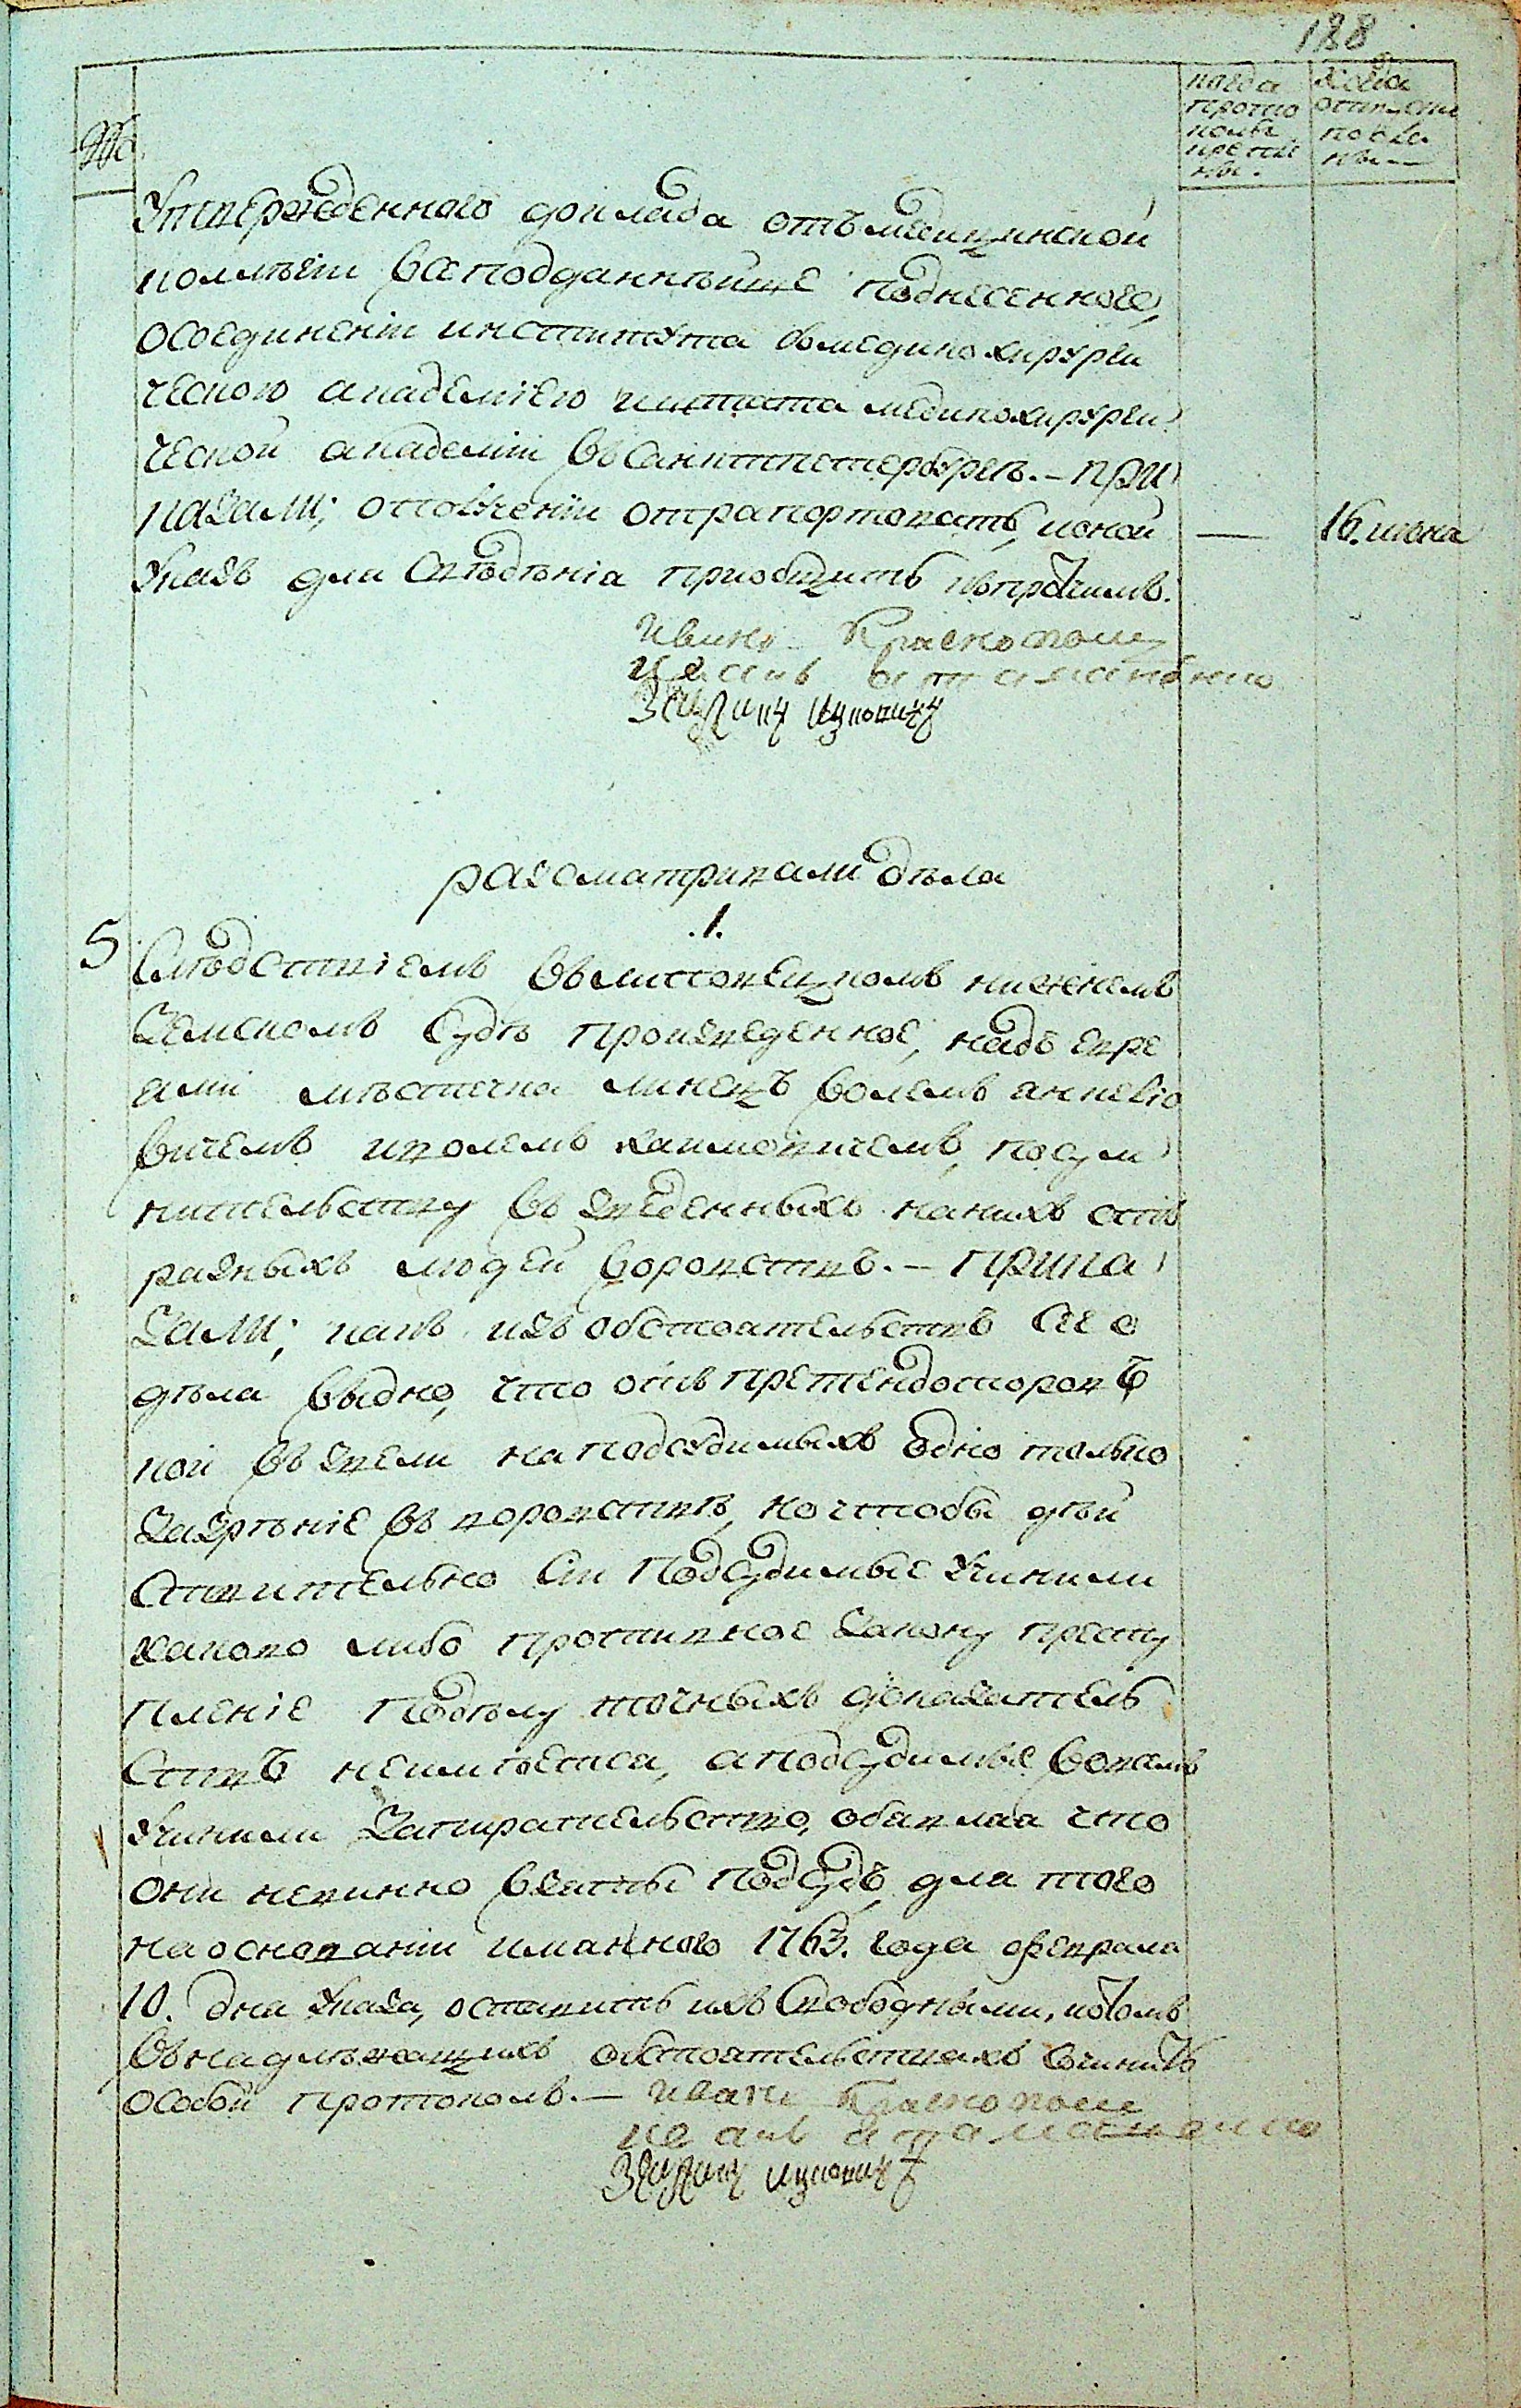 188
№
когда протоколы крепле ны.
когда отпущены посыл ны —
Утвержденного доклада отъ медицинской
коллегіи всеподданнѣйше поднесенного,
осоединеніи института съмедико хирурги
ческою академіею иштата медикохирурги
ческой академіи въ Санктпетербургѣ. – При
казали; ополученіи отрапортовать, ионой — 16. июня
Указъ для Свѣдѣнія приобщить къпрочимъ.
Иванъ Краснополи
Исакъ Атаманенко
разсматривали дѣла
.1.
5 Слѣдствіемъ въ липовецкомъ нижнемъ
Земскомъ Судѣ произведенное, надъ евре
ями мѣстечка линецъ
вичемъ иволемъ хаимовичемъ, посум
нительству въ зведенныхъ нанихъ отъ
разныхъ людей воровствъ. – Прика
зали; какъ изъ обстоятельствъ сего
дѣла видно, что онѣ претендоторовъ
кои въ звели наподсудимыхъ одно только
зазрѣніе въ воровствѣ, ночтобы дѣй
ствительно Сіи Подсудимые Учинили
каково либо противное закону престу
пленіе Подѣлу точныхъ доказатель
ствъ неимѣется, аподсудимые вовсемъ
Учинили запирательство, обявляя что
они невинно взяты подсудъ, для того
наоснованіи имянного 1763. года февраля
10. дня Указа, оставить ихъ Свободными, иотомъ
въ надлежащихъ обстоятельствахъ сочинить
особой протоколъ. — Иванъ Краснополи
Исакъ Атаманенко